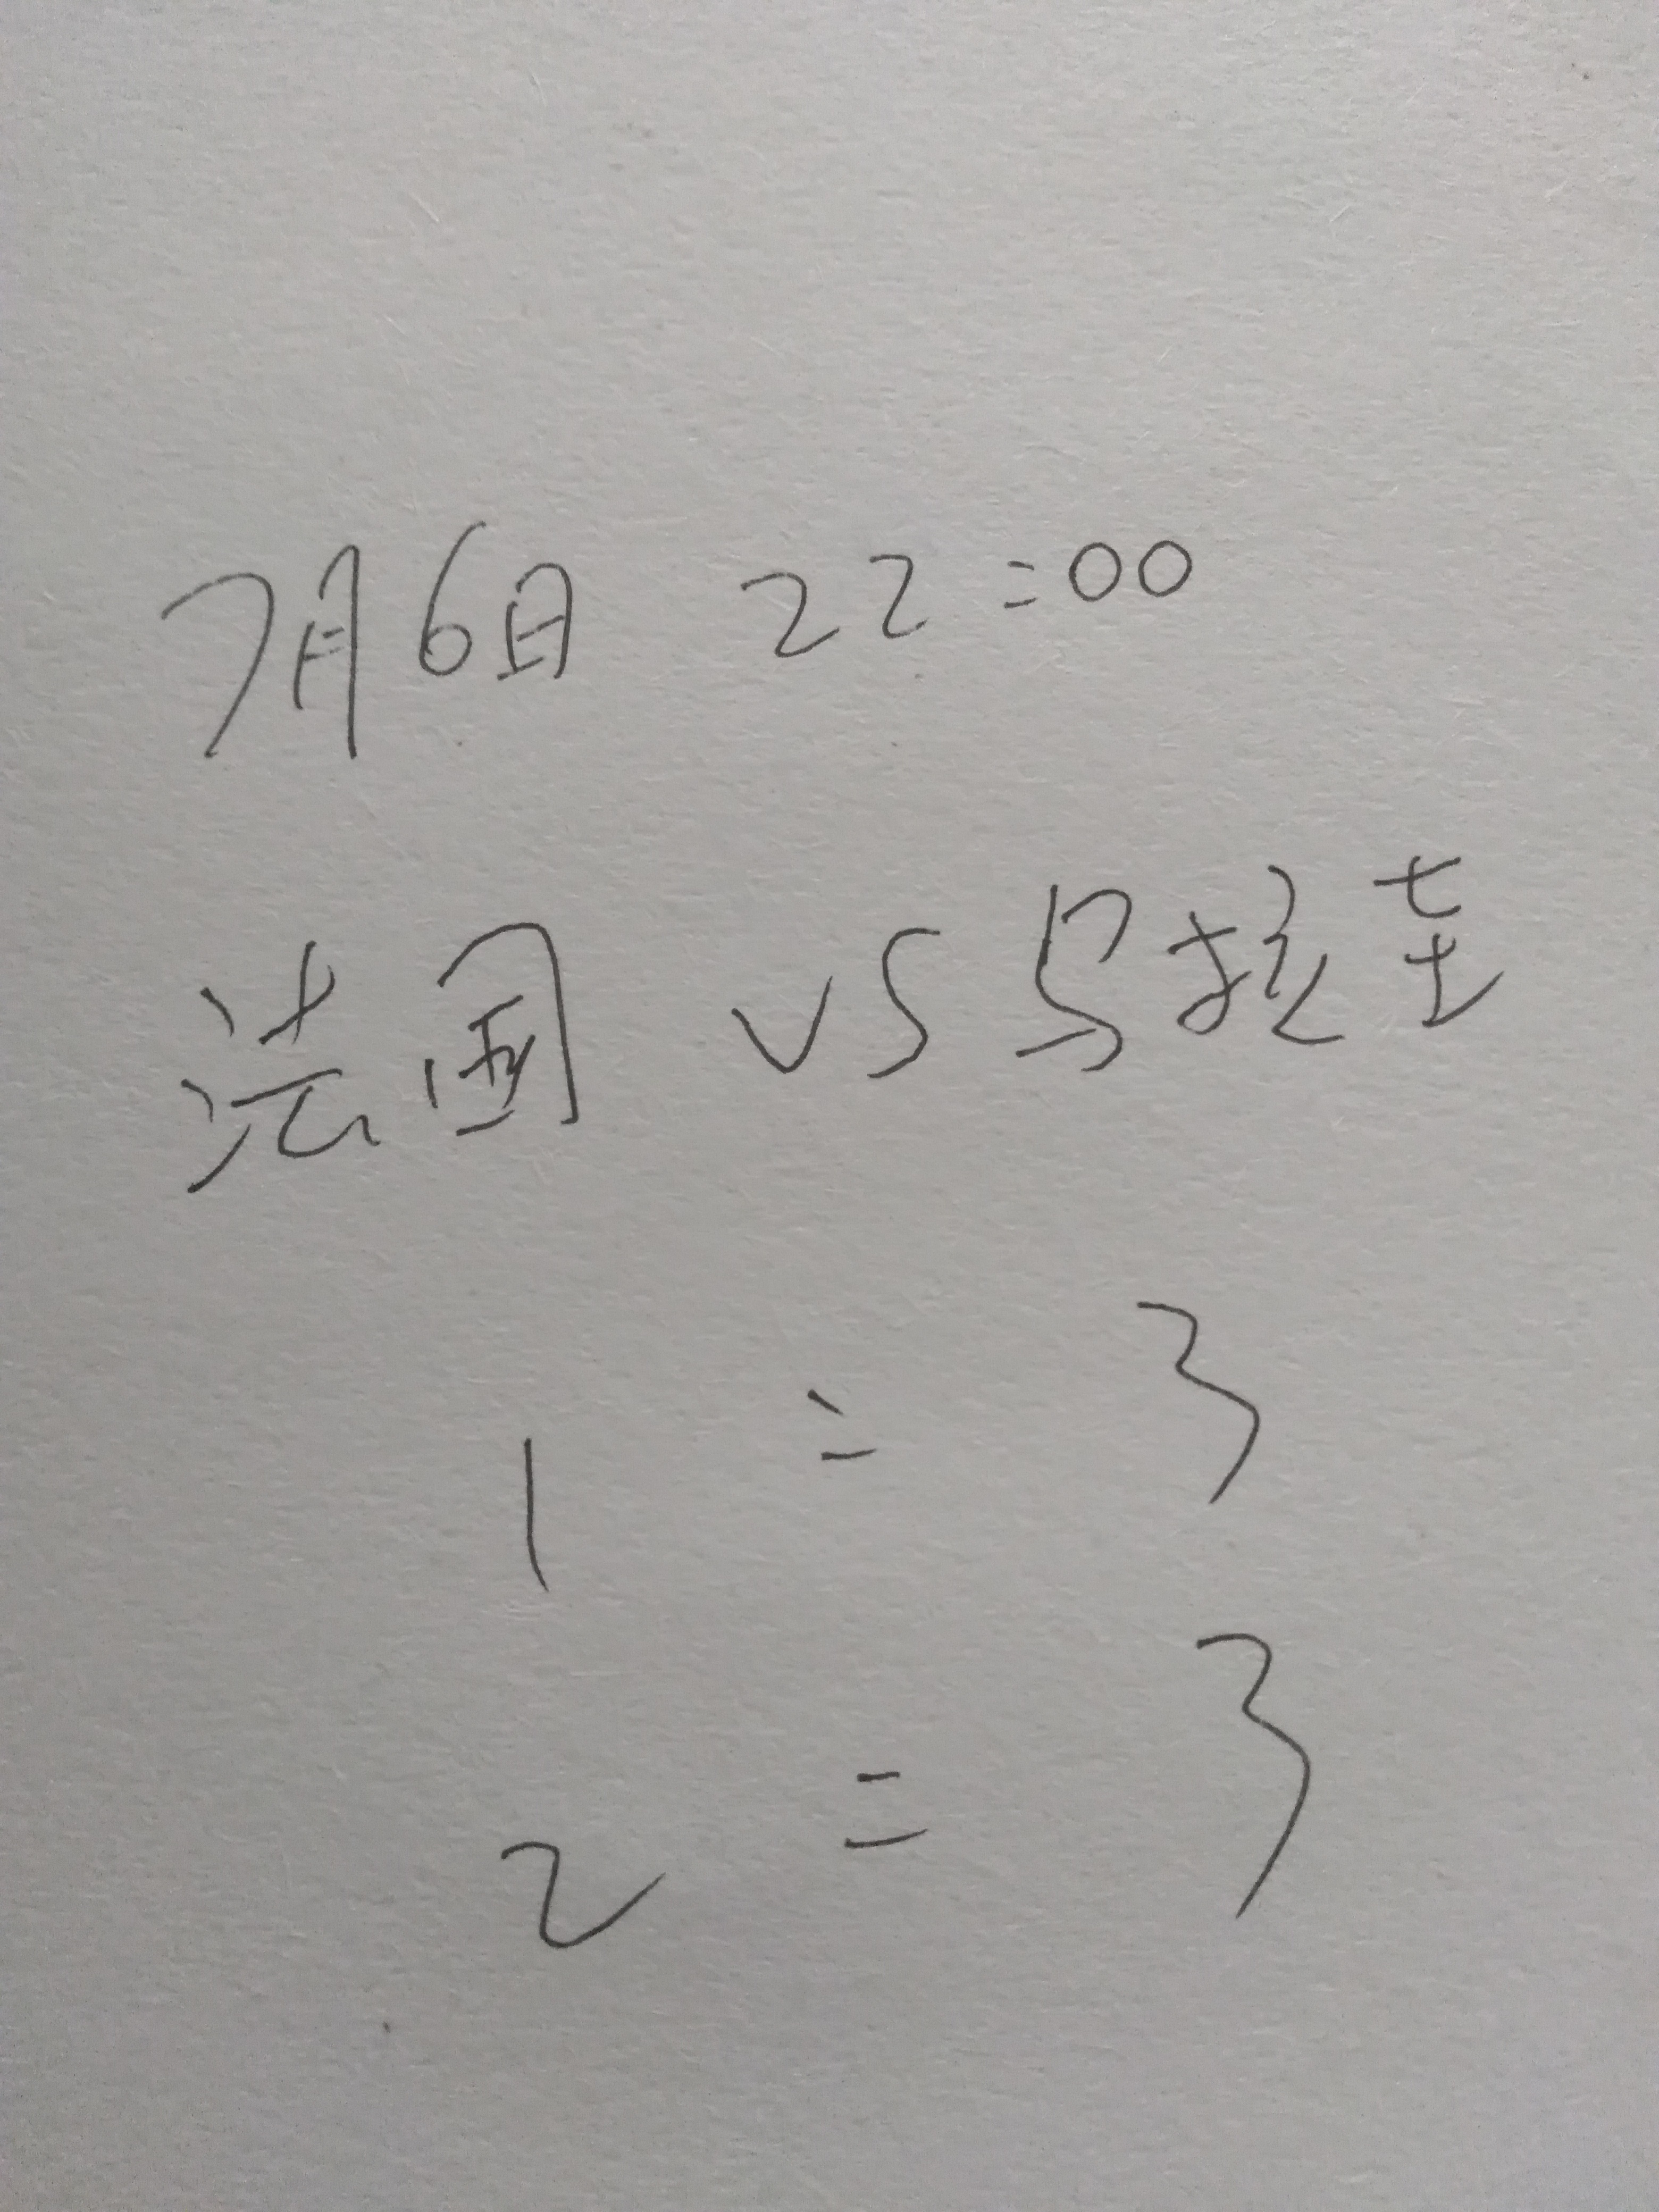 7月6日 22:00
法国 VS 乌拉圭
1 : 3
2 : 3